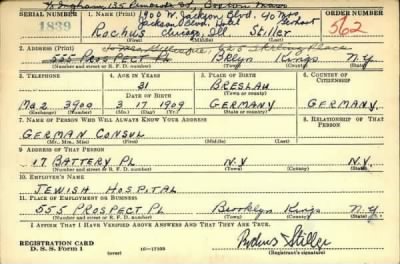 SERIAL NUMBER
1. Name (Print)
ORDER NUMBER
1839
900 W. Jackson Blvd.
Rochus Chicago, Ill Stiller
562
(First) (Middle) (Last)
2. Address (Print)
555 PROSPECT PL BKlyn Kings N.Y.
(Number and street or R. F. D. number) (Town) (County) (State)
3. Telephone
4. Age in Years
5. Place of Birth
6. Country of Citizenship
31
BRESLAU
Date of Birth
(Town or county)
Ma 2 3909 3 17 1909 GERMANY GERMANY
(Exchange) (Number) (Mo.) (Day) (Yr.) (State or country)
7. Name of Person Who Will Always Know Your Address
8. Relationship of That Person
GERMAN CONSUL
(Mr., Mrs., Miss) (First) (Middle) (Last)
9. Address of That Person
17 BATTERY PL N.Y. N.Y.
(Number and street or R. F. D. number) (Town) (County) (State)
10. Employer's Name
JEWISH HOSPITAL
11. Place of Employment or Business
555 PROSPECT PL Brooklyn Kings N.Y.
(Number and street or R. F. D. number) (Town) (County) (State)
I Affirm That I Have Verified Above Answers and That They Are True.
REGISTRATION CARD
D. S. S. Form 1
Rochus Stiller
(Registrant's signature)